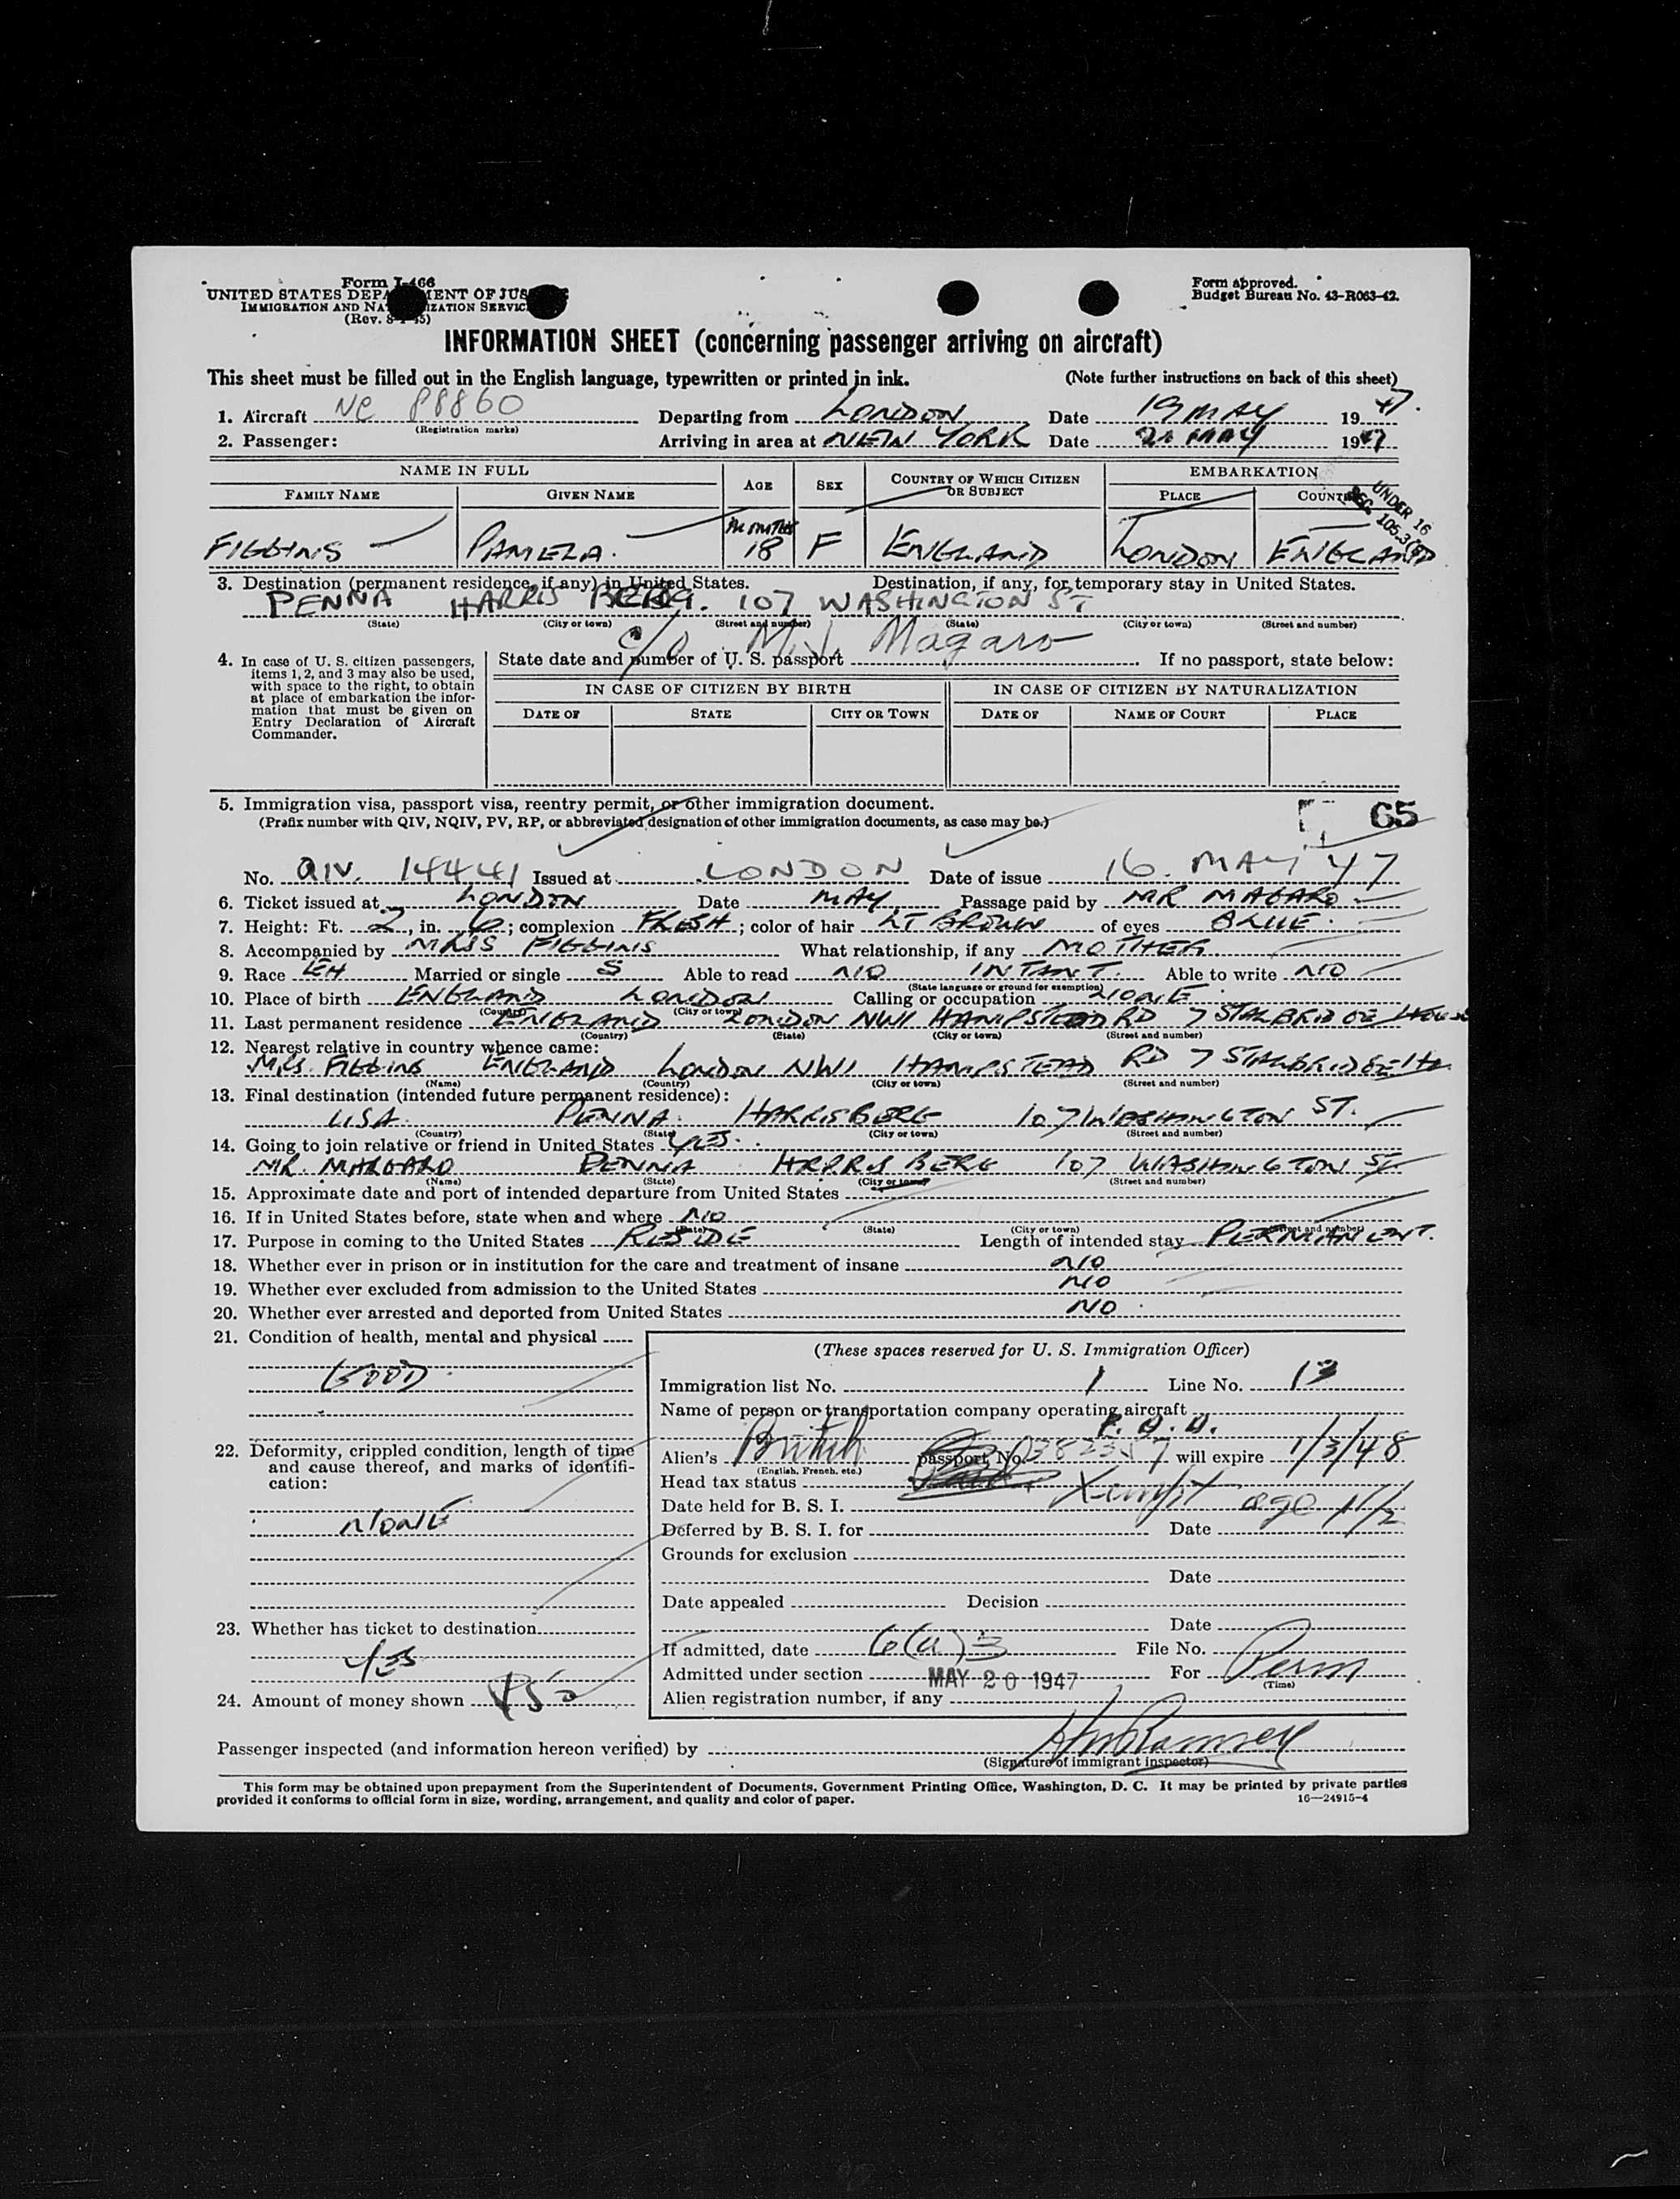 Form I-466
UNITED STATES DEPARTMENT OF JUSTICE
IMMIGRATION AND NATURALIZATION SERVICE
(Rev. 8-1-45)
Form approved.
Budget Bureau No. 43-R063-42.
INFORMATION SHEET (concerning passenger arriving on aircraft)
This sheet must be filled out in the English language, typewritten or printed in ink. (Note further instructions on back of this sheet)
1. Aircraft NC 88860 Departing from LONDON Date 19 MAY 1947.
(Registration marks)
2. Passenger: Arriving in area at NEW YORK Date MAY 1947
NAME IN FULL AGE SEX COUNTRY OF WHICH CITIZEN OR SUBJECT EMBARKATION
FAMILY NAME GIVEN NAME PLACE COUNTRY
UNDER 16
SEC. 105.3(
FIGGINS PAMELA. MONTHS 18 F ENGLAND LONDON ENGLAND
3. Destination (permanent residence, if any) in United States. Destination, if any, for temporary stay in United States.
PENNA HARRIS BERG. 107 WASHINGTON ST
(State) (City or town) (Street and number) (State) (City or town) (Street and number)
c/o M. J. Magaro
4. In case of U. S. citizen passengers, items 1, 2, and 3 may also be used, with space to the right, to obtain at place of embarkation the information that must be given on Entry Declaration of Aircraft Commander.
State date and number of U. S. passport If no passport, state below:
IN CASE OF CITIZEN BY BIRTH IN CASE OF CITIZEN BY NATURALIZATION
DATE OF STATE CITY OR TOWN DATE OF NAME OF COURT PLACE
5. Immigration visa, passport visa, reentry permit, or other immigration document.
(Prefix number with QIV, NQIV, PV, RP, or abbreviated designation of other immigration documents, as case may be.)
65
No. QIV. 14441 Issued at LONDON Date of issue 16. MAY 47
6. Ticket issued at LONDON Date MAY Passage paid by MR MAGARO
7. Height: Ft. 2, in. 6; complexion FRESH; color of hair LT BROWN of eyes BLUE.
8. Accompanied by MRS FIGGINS What relationship, if any MOTHER.
9. Race EH Married or single S Able to read NO INFANT. Able to write NO
(State language or ground for exemption)
10. Place of birth ENGLAND LONDON Calling or occupation NONE
(Country) (City or town)
11. Last permanent residence ENGLAND LONDON NW1 HAMPSTEAD RD 7 STALBRIDGE
(Country) (State) (City or town) (Street and number)
12. Nearest relative in country whence came:
MRS. FIGGINS ENGLAND LONDON NW1 HAMPSTEAD RD 7 STALBRIDGE
(Name) (Country) (City or town) (Street and number)
13. Final destination (intended future permanent residence):
USA. PENNA. HARRISBERG 107 WASHINGTON ST.
(Country) (State) (City or town) (Street and number)
14. Going to join relative or friend in United States YES.
MR. MARGARO PENNA HARRIS BERG 107 WASHINGTON ST
(Name) (State) (City or town) (Street and number)
15. Approximate date and port of intended departure from United States
16. If in United States before, state when and where NO
(Date) (State) (City or town) (Street and number)
17. Purpose in coming to the United States RESIDE Length of intended stay PERMANENT.
18. Whether ever in prison or in institution for the care and treatment of insane NO
19. Whether ever excluded from admission to the United States NO
20. Whether ever arrested and deported from United States NO
21. Condition of health, mental and physical
GOOD
22. Deformity, crippled condition, length of time and cause thereof, and marks of identification:
NONE
23. Whether has ticket to destination
YES
24. Amount of money shown
(These spaces reserved for U. S. Immigration Officer)
Immigration list No. 1 Line No. 13
Name of person or transportation company operating aircraft
P. A. A.
Alien's British passport No. will expire 1/3/48
(English, French, etc.)
Head tax status
Xempt age 1 1/2
Date held for B. S. I.
Deferred by B. S. I. for Date
Grounds for exclusion
Date
Date appealed Decision
Date
If admitted, date 6(a)3 File No.
Admitted under section MAY 20 1947 For Perm
(Time)
Alien registration number, if any
Passenger inspected (and information hereon verified) by
(Signature of immigrant inspector)
This form may be obtained upon prepayment from the Superintendent of Documents, Government Printing Office, Washington, D. C. It may be printed by private parties
provided it conforms to official form in size, wording, arrangement, and quality and color of paper. 16—24915-4